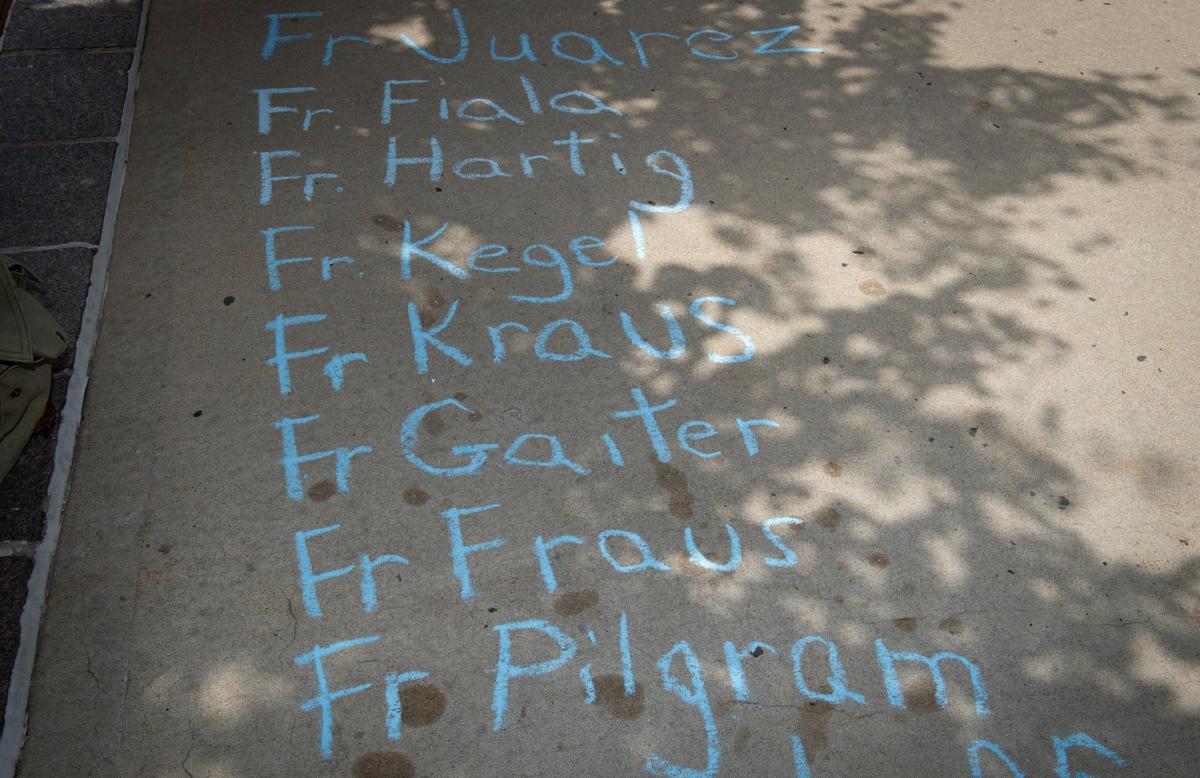 Fr Juarez
Fr. Fiala
Fr. Hartig
Fr. Kegel
Fr Kraus
Fr Gaiter
Fr Fraus
Fr Pilgram